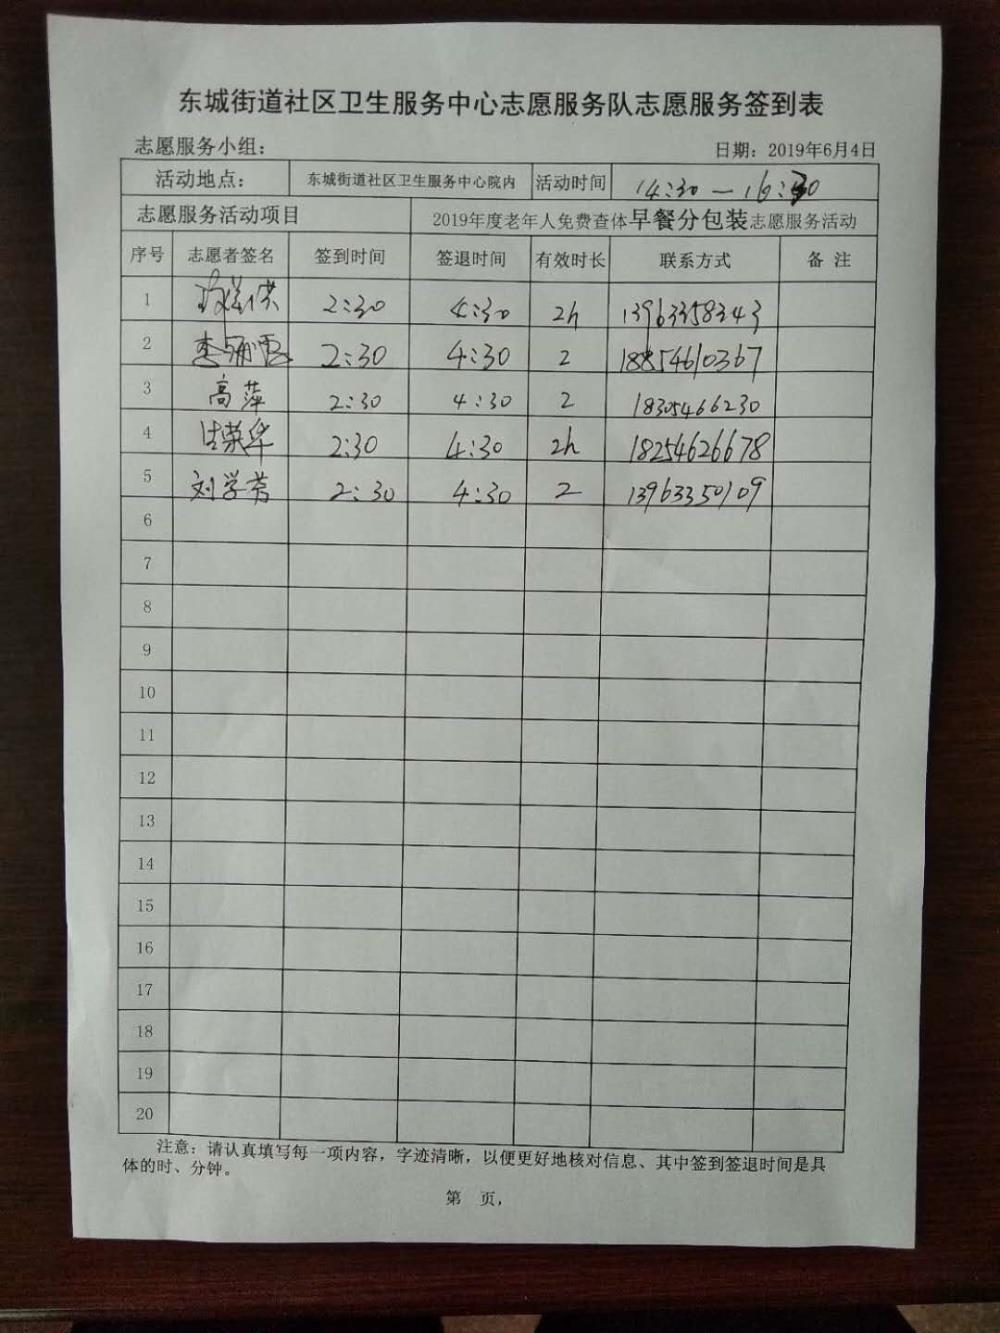 东城街道社区卫生服务中心志愿服务队志愿服务签到表
志愿服务小组: 日期: 2019年6月4日
活动地点: 东城街道社区卫生服务中心院内 活动时间 14:30—16:30
志愿服务活动项目 2019年度老年人免费查体早餐分包装志愿服务活动
序号 志愿者签名 签到时间 签退时间 有效时长 联系方式 备注
1 2:30 4:30 2h 13963358343
2 2:30 4:30 2 18854610367
3 高萍 2:30 4:30 2 18305466230
4 2:30 4:30 2h 18254626678
5 刘学芳 2:30 4:30 2 13963350109
6
7
8
9
10
11
12
13
14
15
16
17
18
19
20
注意: 请认真填写每一项内容, 字迹清晰, 以便更好地核对信息、其中签到签退时间是具
体的时、分钟。
第 页,